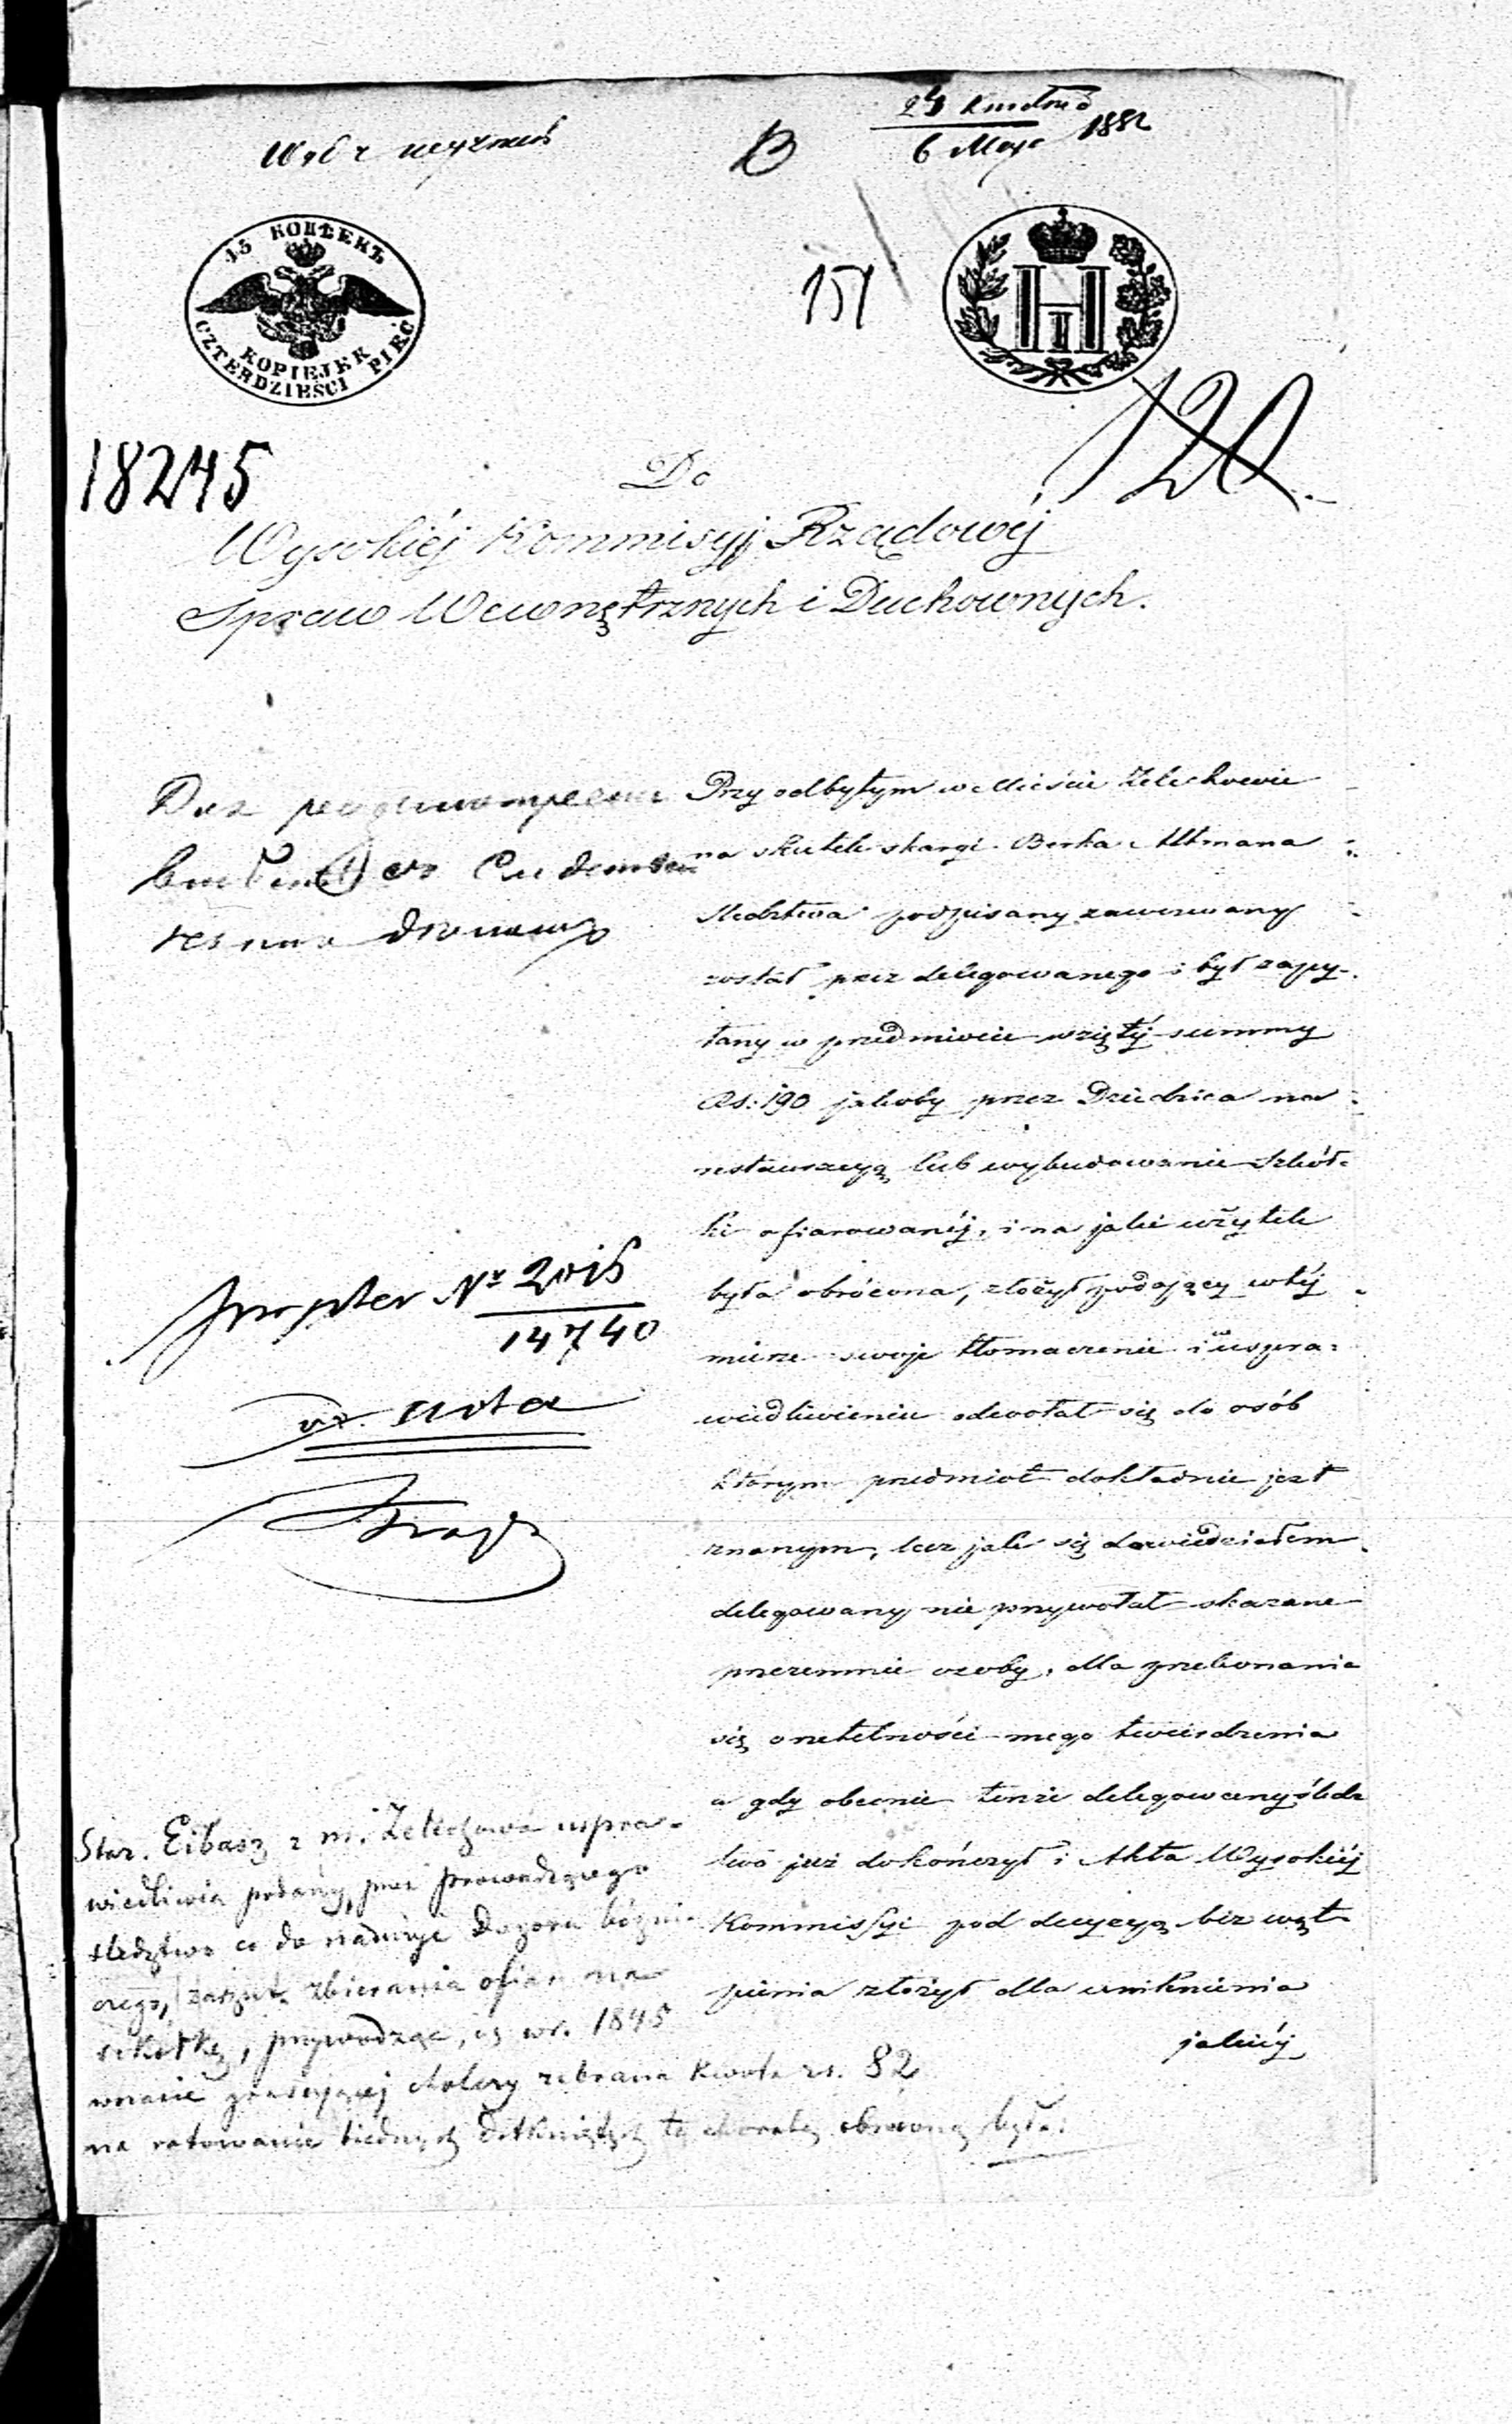 24 Kwietnia
6 Maja 1852
B
45 КОПѢЕКЪ
KOPIEJEK
CZTERDZIEŚCI PIĘĆ
151
H I
120.
18245
Do
Wysokiéj Kommisyj Rządowéj
Spraw Wewnętrznych i Duchownych.
Przy odbytym w Mieście Żelechowie
na skutek skargi Berka Altmana
śledztwa podpisany zawezwany
został przez delegowanego i był zapy-
tany w przedmiocie wziętéj summy
Rs: 190 jakoby przez Dziedzica na
restauracyą lub wybudowanie Szkół-
ki ofiarowanéj, i na jaki użytek
była obrócona, złożył podający w téj
mierze swoje tłomaczenie i w uspra-
wiedliwieniu odwołał się do osób
którym przedmiot dokładnie jest
znanym, lecz jak się dowiedziałem
delegowany nie przywołał skazane
przezemnie osoby, dla przekonania
się o rzetelności mego twierdzenia
a gdy obecnie tenże delegowany śledz
two już dokończył i Akta Wysokiéj
Kommissyi pod decyzyą bez wąt-
pienia złożył dla uniknienia
jakiéj
Nr
14740
ad acta
Star. Eibasz z m. Żelechowa uspra-
wiedliwia podany przez prowadzącego
śledztwo co do nadużyć Dozoru bóżni-
czego, zarzut zbierania ofiar na
szkółkę, przywodząc, iż w r. 1845
w czasie grassującej cholery zebrana kwota rs. 82
na ratowanie biednych dotkniętych tą chorobą obróconą była.